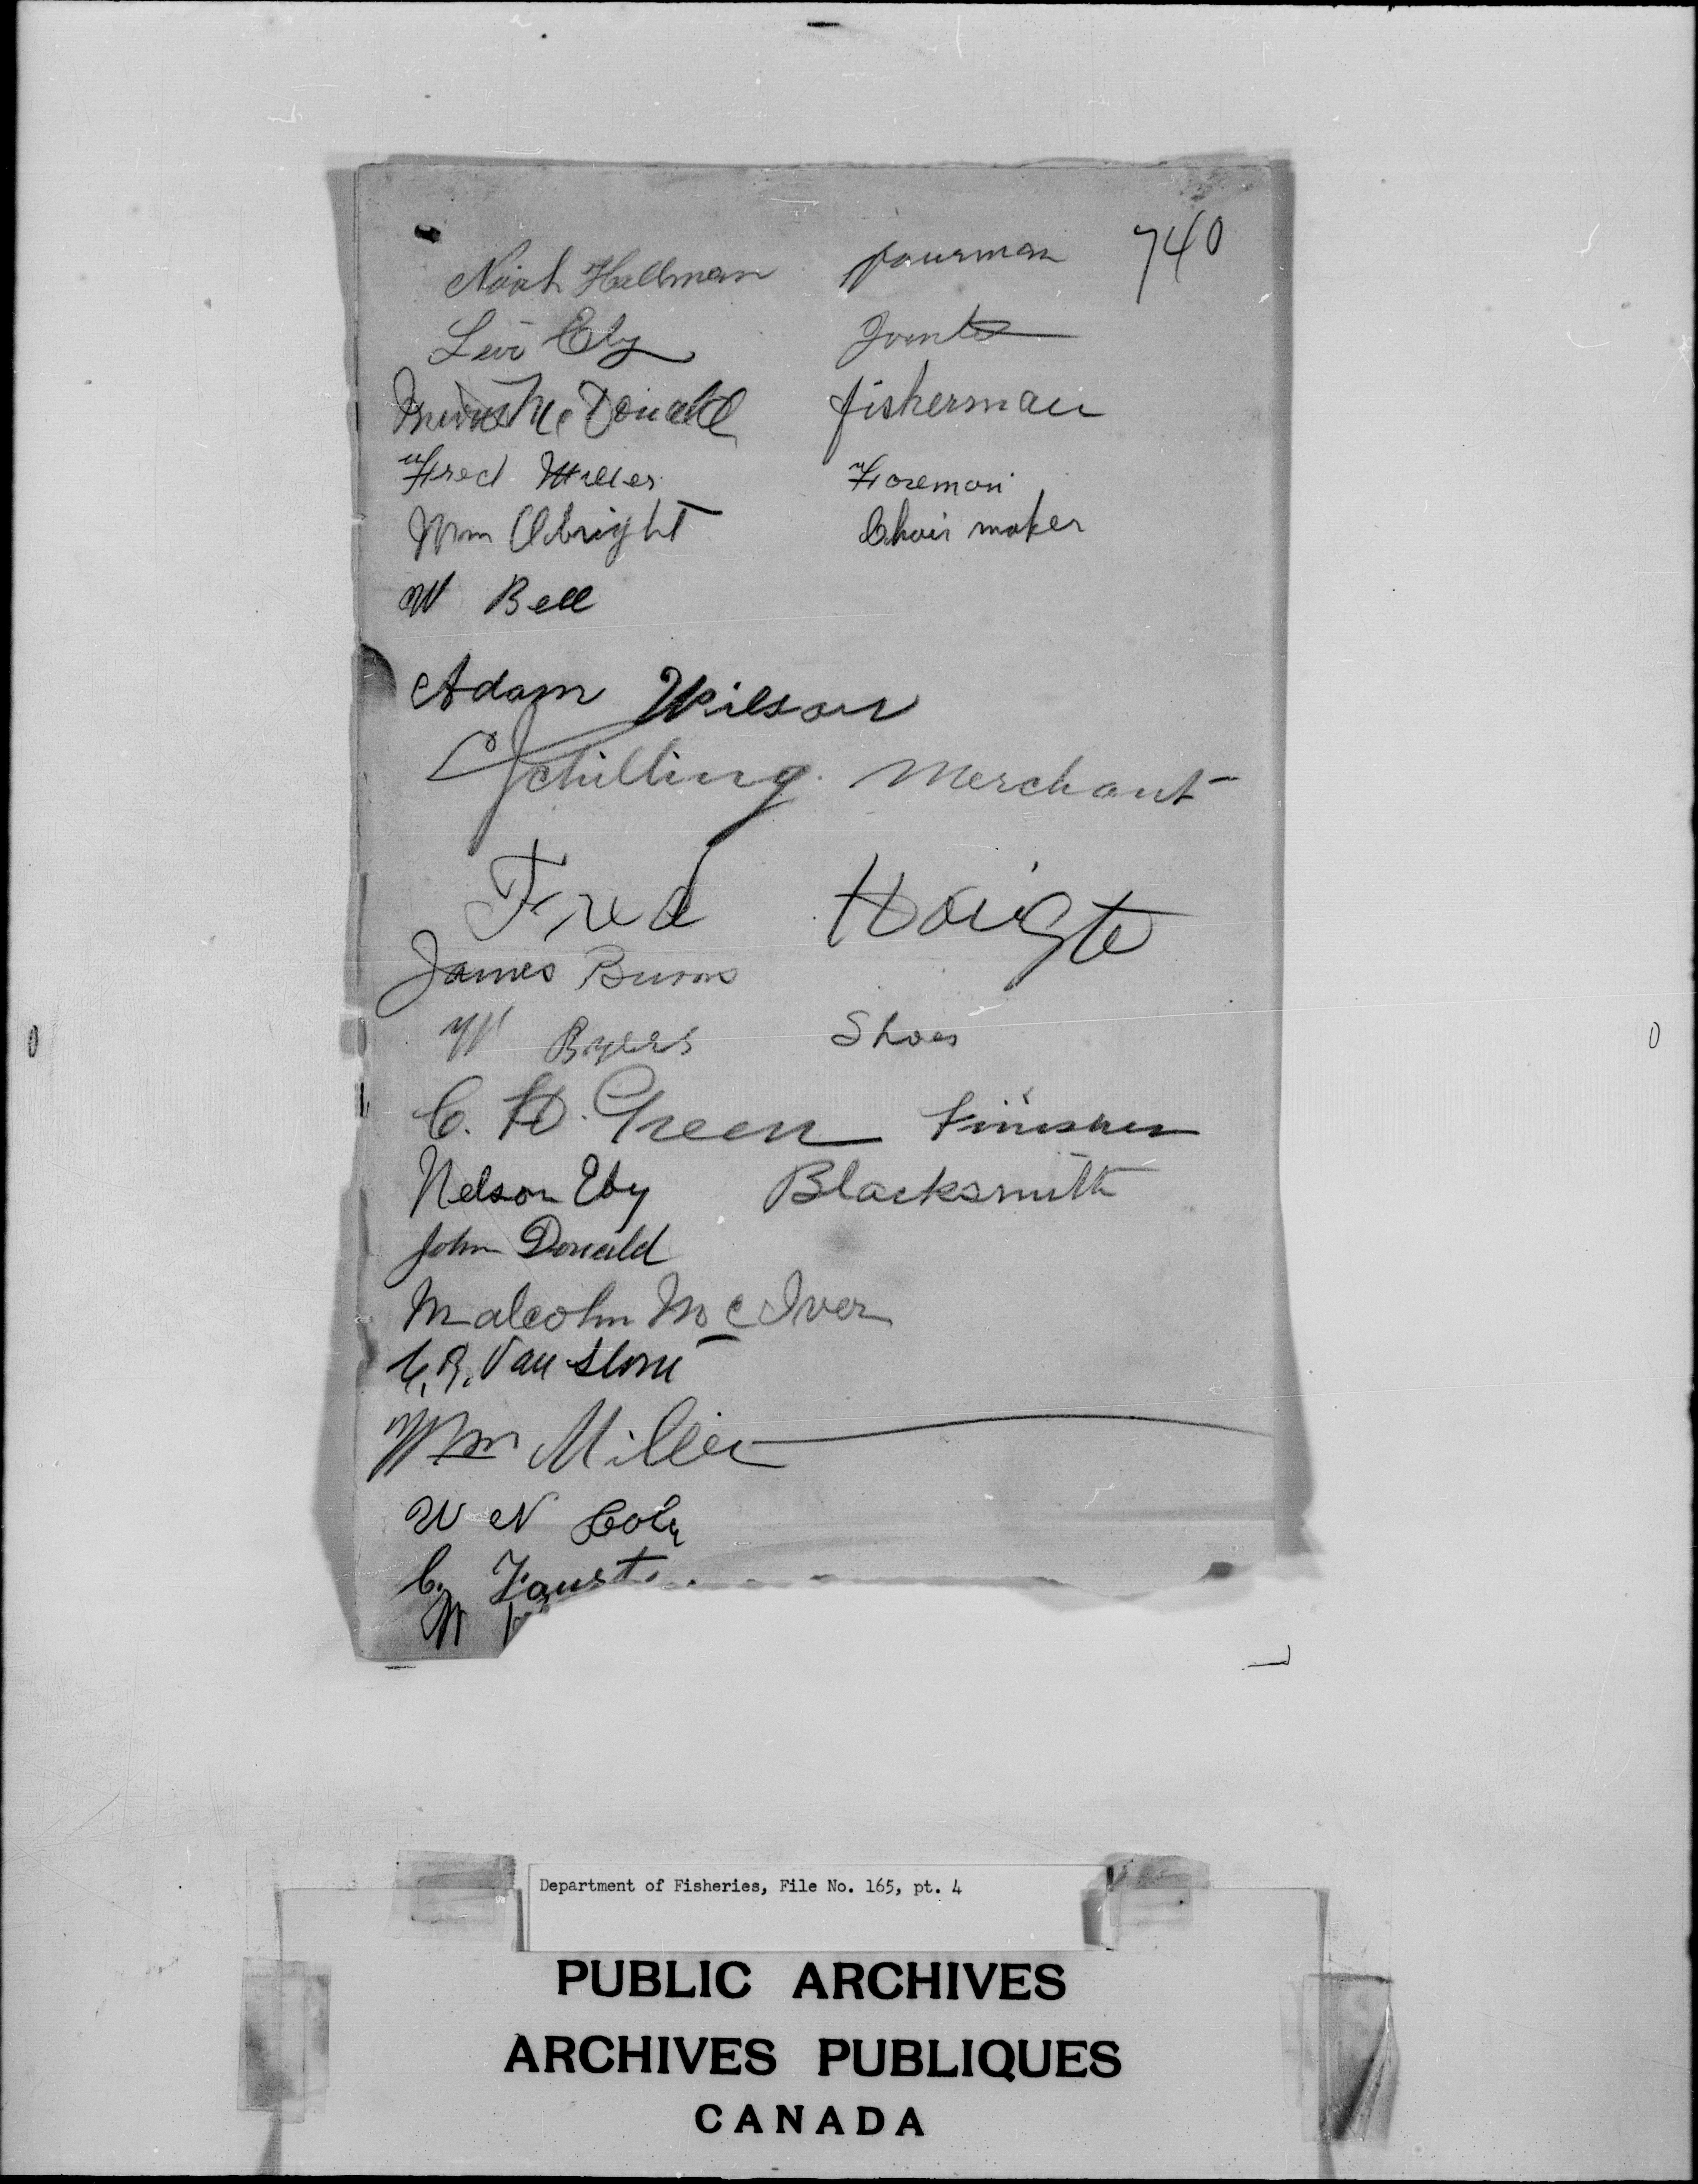 740
Noah Hallman
Levi Eby
McDonald fisherman
Fred Miller Foreman
Wm Albright Chair maker
W Bell
Adam Wilson
C Schilling. Merchant
Fred
James Burns
W Byers Shoes
C. H. Green Finisher
Nelson Eby Blacksmith
John Donald
Malcolm McIver
Van Stone
Wm Miller
W N
C. Faust.
W
Department of Fisheries, File No. 165, pt. 4
PUBLIC ARCHIVES
ARCHIVES PUBLIQUES
CANADA